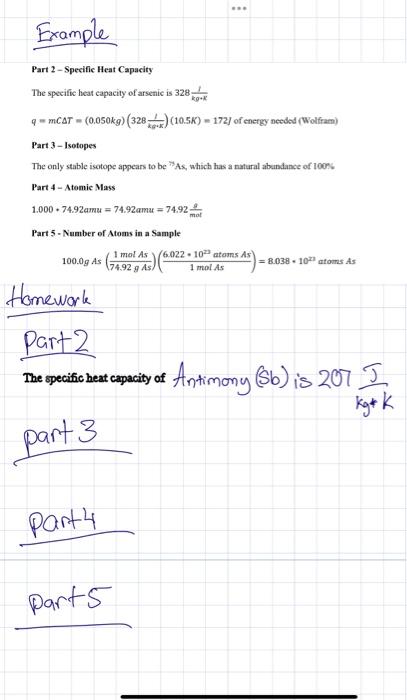 Example
Part 2 – Specific Heat Capacity
The specific heat capacity of arsenic is 328 J/(kg*K)
q = mCΔT = (0.050kg)(328 J/(kg*K))(10.5K) = 172J of energy needed (Wolfram)
Part 3 – Isotopes
The only stable isotope appears to be ⁷⁵As, which has a natural abundance of 100%
Part 4 – Atomic Mass
1.000 * 74.92amu = 74.92amu = 74.92 g/mol
Part 5 - Number of Atoms in a Sample
100.0g As (1 mol As / 74.92 g As)(6.022 * 10²³ atoms As / 1 mol As) = 8.038 * 10²³ atoms As
Homework
Part 2
The specific heat capacity of Antimony (Sb) is 207 J/(kg*K)
part 3
Part 4
Part 5